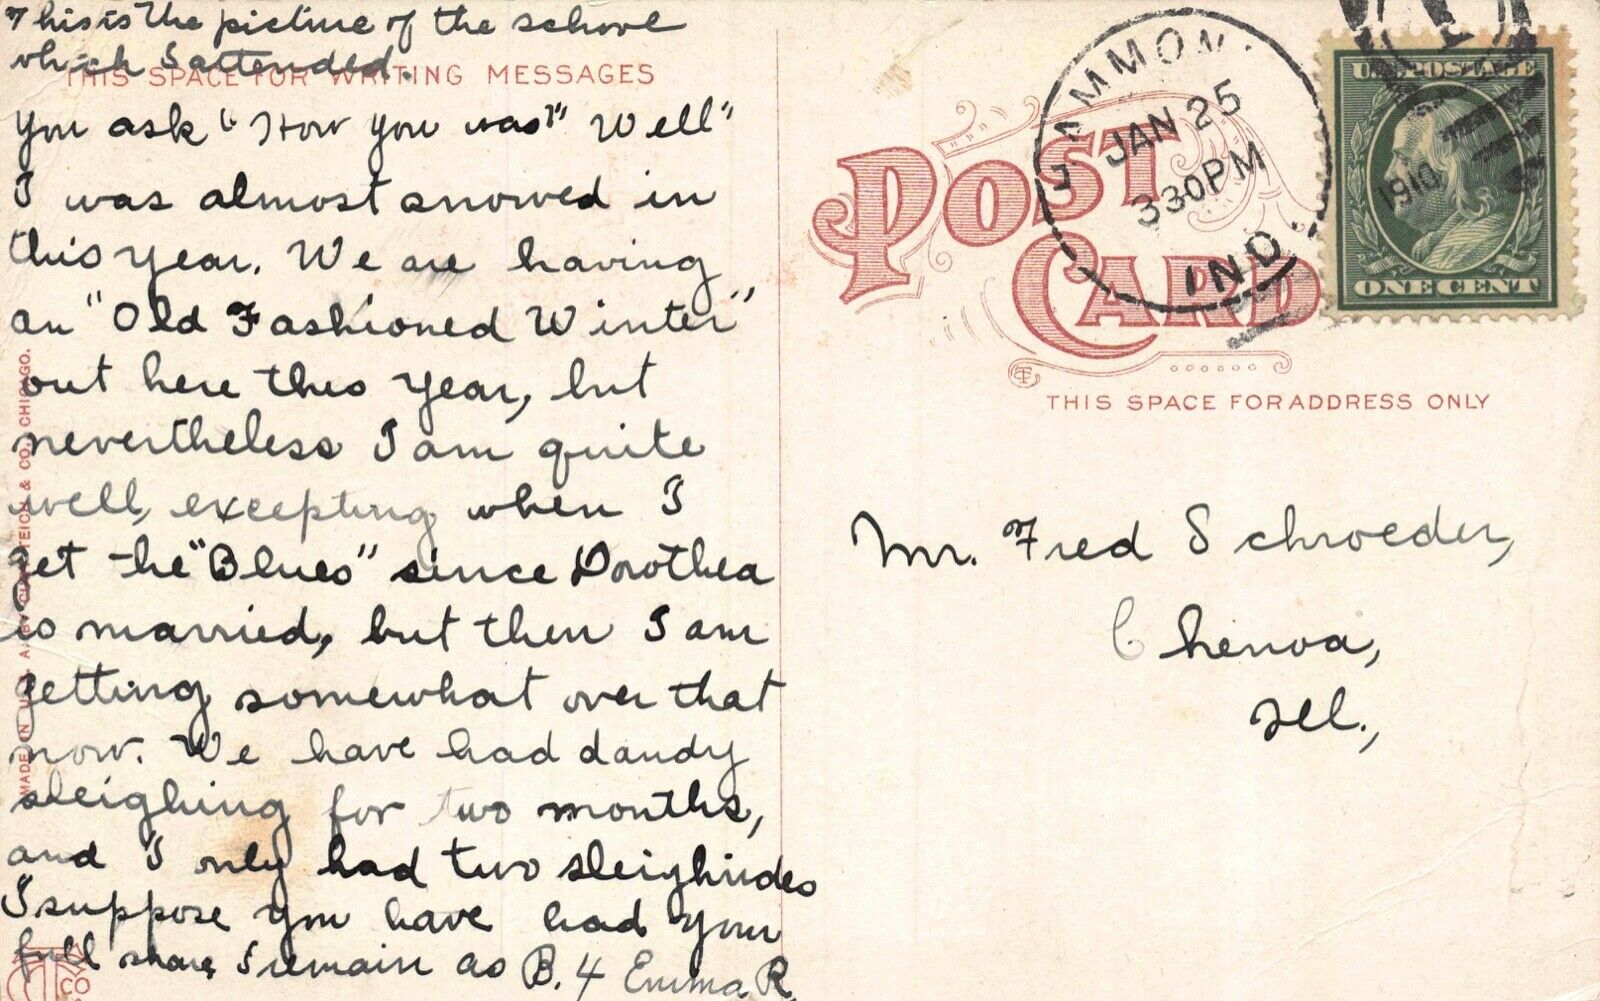 This is the picture of the school
which I attended.
THIS SPACE FOR WRITING MESSAGES
You ask "How you was?" Well"
I was almost snowed in
this year. We are having
an "Old Fashioned Winter"
out here this year, but
nevertheless I am quite
well, excepting when I
get the "Blues" since Dorothea
is married, but then I am
getting somewhat over that
now. We have had dandy
sleighing for two months,
and I only had two sleighrides
I suppose you have had your
full share, I remain as B. 4 Emma R.
MADE IN U.S.A. BY CURT TEICH & CO. CHICAGO.
CT CO
POST
CARD
CT
HAMMOND
JAN 25
330PM
1910
IND.
U.S. POSTAGE
ONE CENT
THIS SPACE FOR ADDRESS ONLY
Mr. Fred Schroeder,
Chenoa,
Ill.,